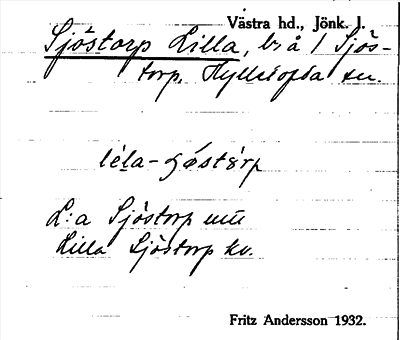 Västra hd., Jönk. l.
Sjöstorp Lilla, br, å 1 Sjös-
torp, Hyllstofta sn.
léla-sjǿstɛrp
L:a Sjöstorp
Lilla Sjöstorp kv.
Fritz Andersson 1932.